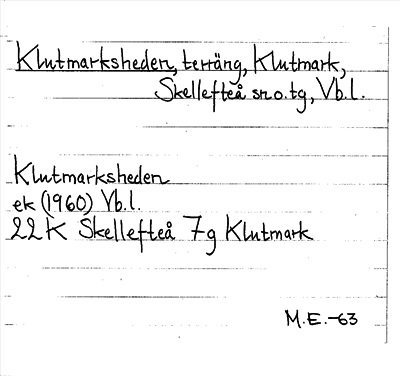 Klutmarksheden, terräng, Klutmark,
Skellefteå sn o. tg, Vb.l.
Klutmarksheden
ek (1960) Vb.l.
22K Skellefteå 7g Klutmark
M.E.-63